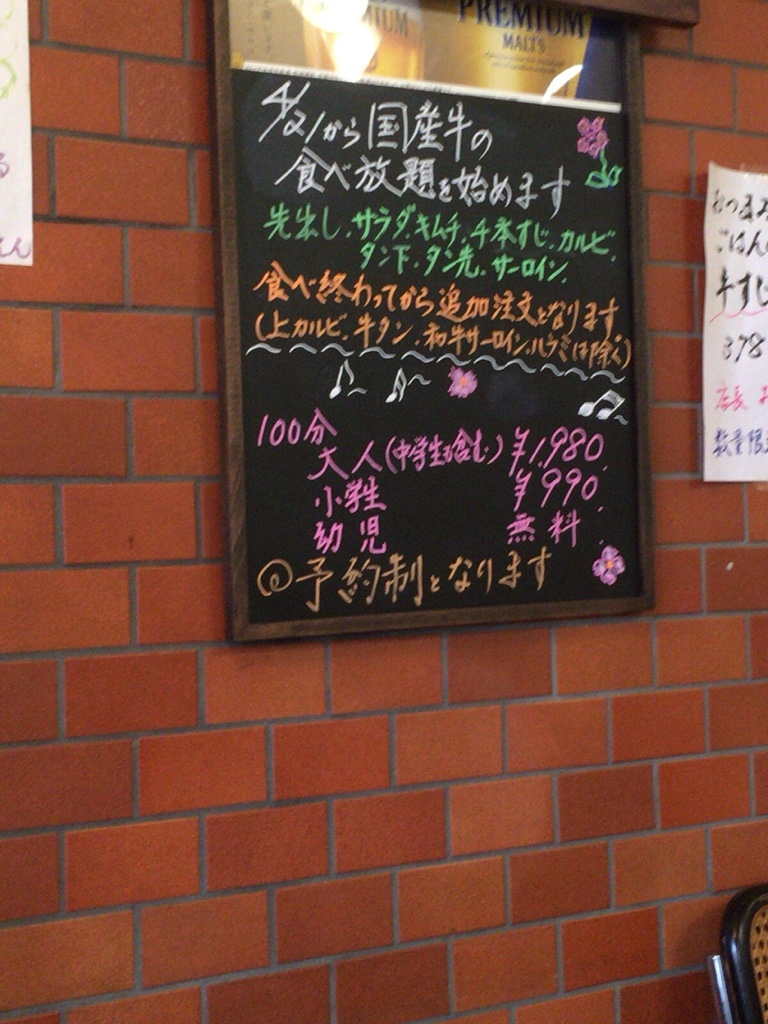 PREMIUM
PREMIUM
MALT'S
4/21から国産牛の
食べ放題を始めます
先出し、サラダ、キムチ、千本すじ、カルビ、
タン下、タン先、サーロイン、
食べ終わってから追加注文となります
(上カルビ、牛タン、和牛サーロイン、ハラミは除く)
100分
大人(中学生も含む) ¥1,980
小学生 ¥990
幼児 無料
◎予約制となります
おつまみ
ごはん
牛すじ
378
店長
数量限